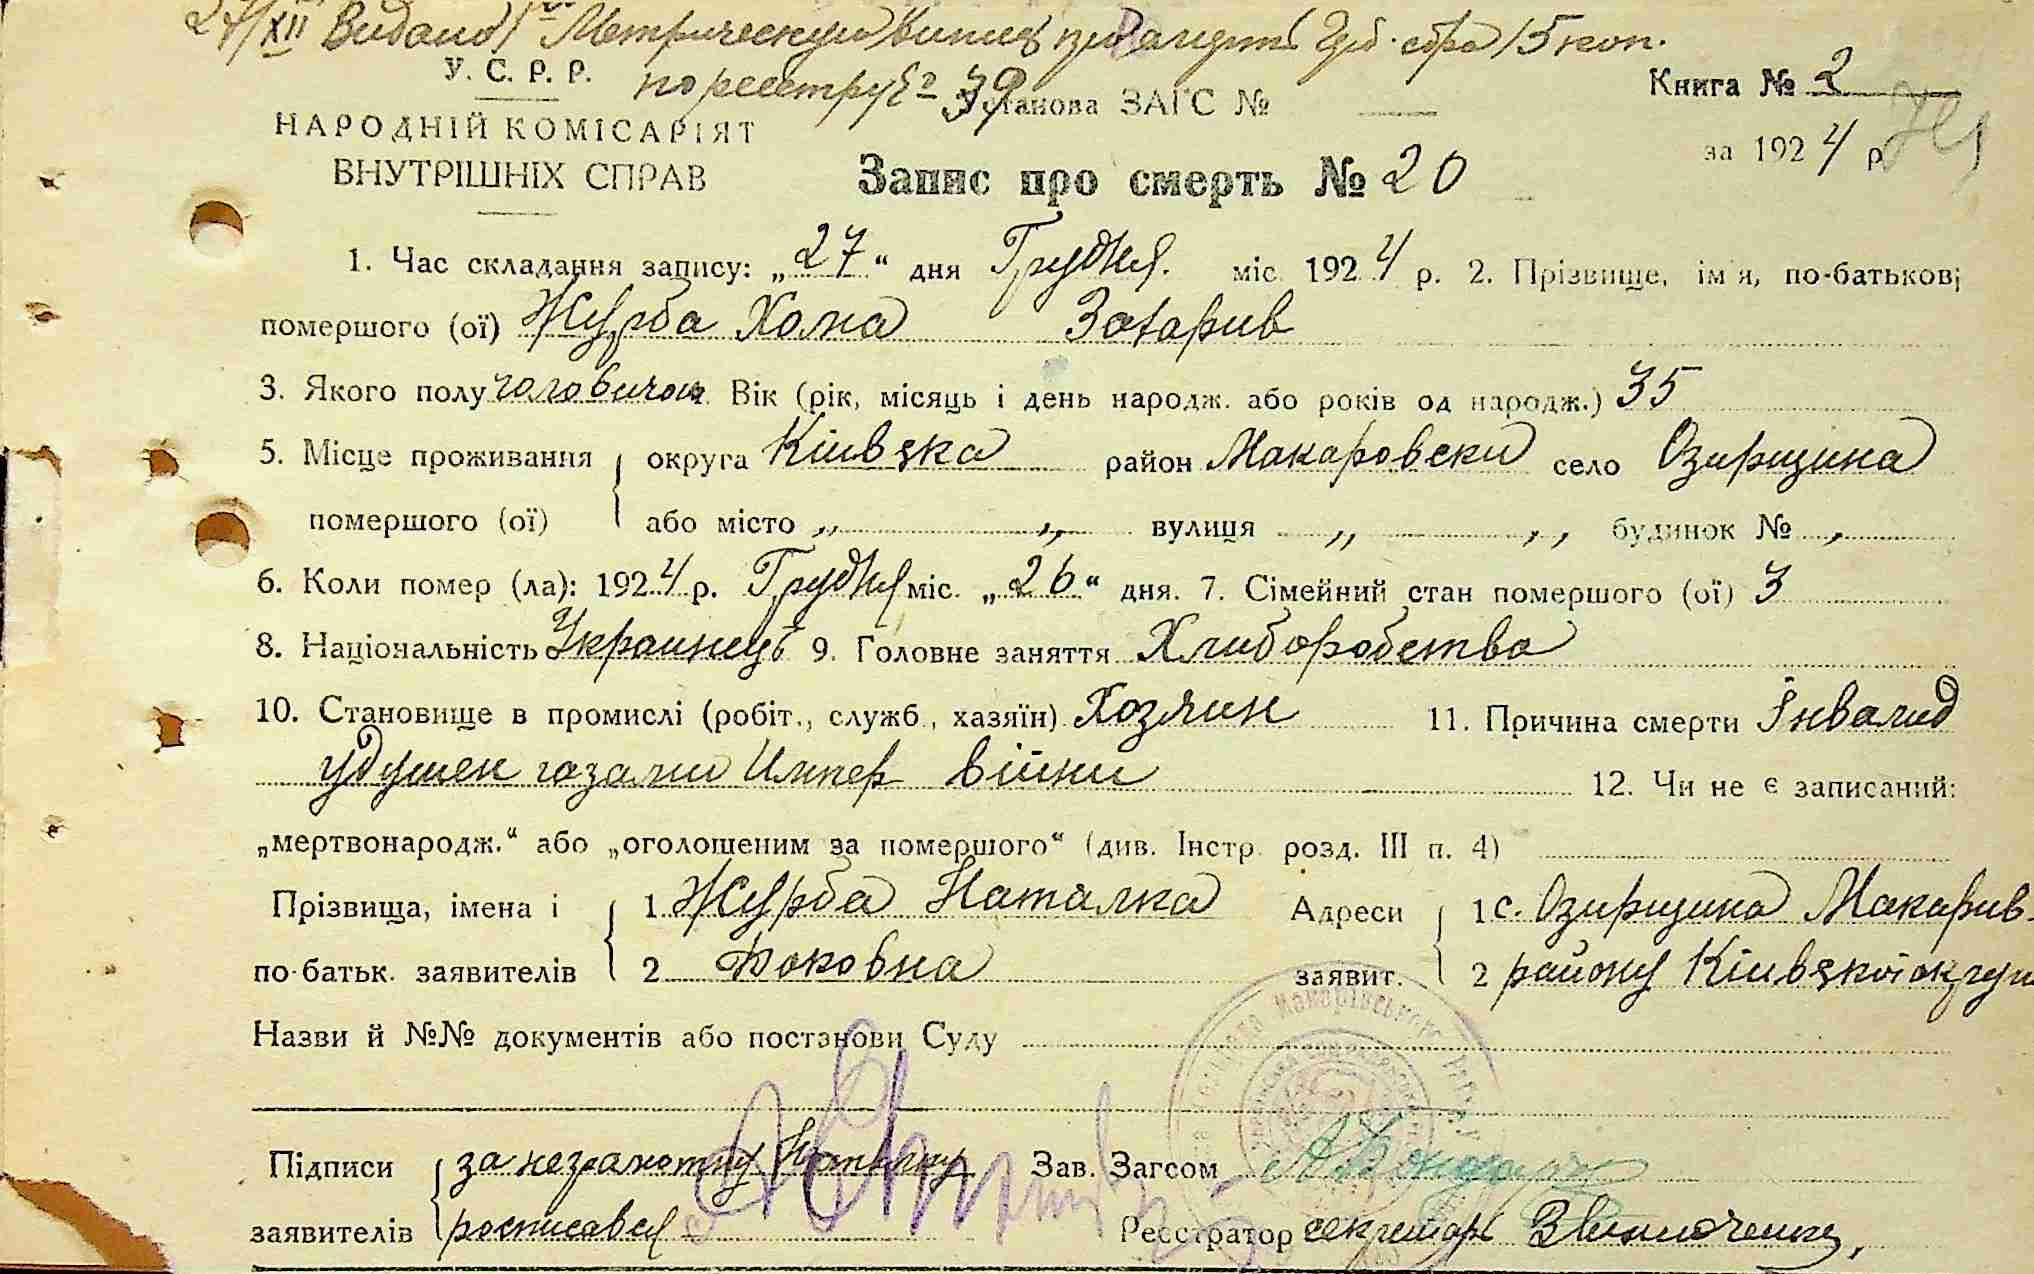 27/XII Видано Метрическую Выпись
по реестру № 39
У. С. Р. Р.
Установа ЗАГС №
Книга № 2
НАРОДНІЙ КОМІСАРІЯТ
ВНУТРІШНІХ СПРАВ
за 1924 р.
Запис про смерть № 20
1. Час складання запису: „27“ дня Грудня. міс. 1924 р. 2. Прізвище, ім'я, по-батькові
помершого (ої) Журба Хома Захарив
3. Якого полу чоловичои Вік (рік, місяць і день народж. або років од народж.) 35
5. Місце проживання округа Кіивзка район Макаровски село Озирщина
помершого (ої) або місто „ „ вулиця „ „ будинок № „
6. Коли помер (ла): 1924 р. Грудня міс. „26“ дня. 7. Сімейний стан помершого (ої) 3
8. Національність Украинець 9. Головне заняття Хлиборобство
10. Становище в промислі (робіт., служб., хазяїн) Хозяин 11. Причина смерти Інвалид
удушен газами Импер війни 12. Чи не є записаний:
„мертвонародж.“ або „оголошеним за помершого“ (див. Інстр. розд. III п. 4)
Прізвища, імена і 1 Журба Наталка Адреси 1 с. Озирщина Макарив.
по-батьк. заявителів 2 Фоковна заявит. 2 району Кіивзкоі округи
Назви й №№ документів або постанови Суду
Підписи за неграмотну Наталку Зав. Загсом
заявителів росписався Реєстратор секретарь